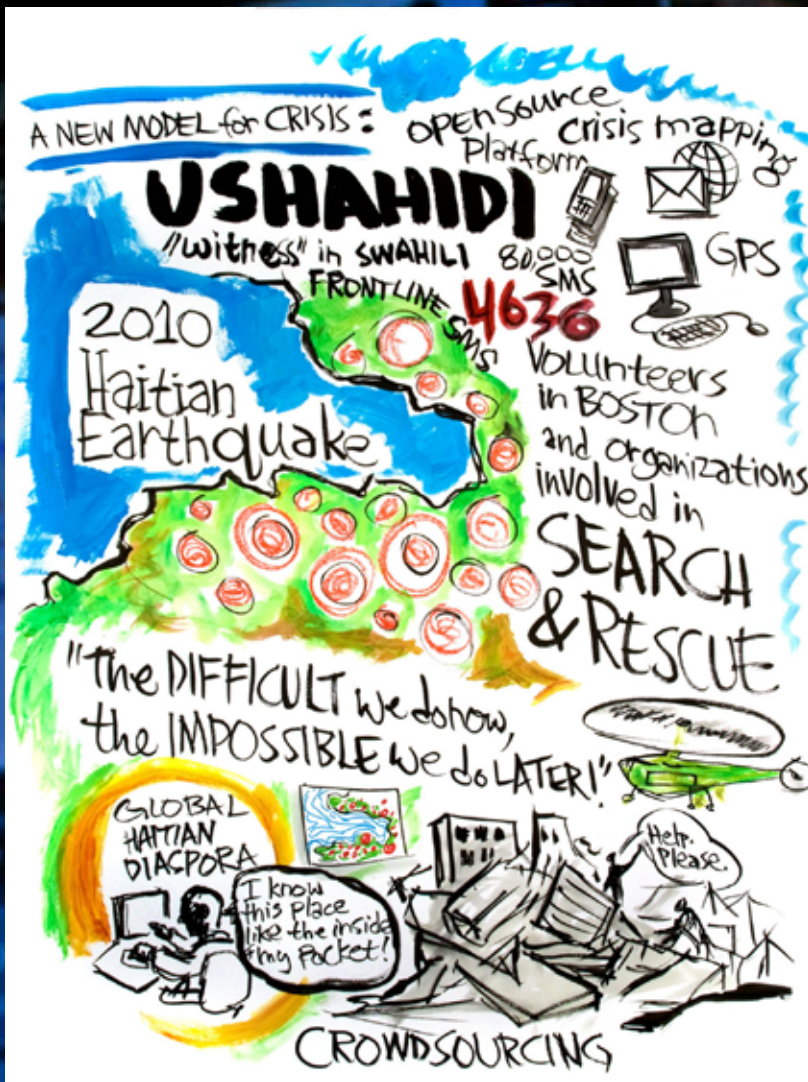 A NEW MODEL for CRISIS:
OPEN Source
Platform
Crisis mapping
USHAHIDI
"witness" in SWAHILI
80,000
SMS
GPS
FRONTLINE SMS
4636
2010
Haitian
Earthquake
Volunteers
in BOSTON
and organizations
involved in
SEARCH
& RESCUE
"the DIFFICULT we do now,
the IMPOSSIBLE we do LATER!"
GLOBAL
HAITIAN
DIASPORA
I know
this place
like the inside
of my Pocket!
Help.
Please.
CROWDSOURCING